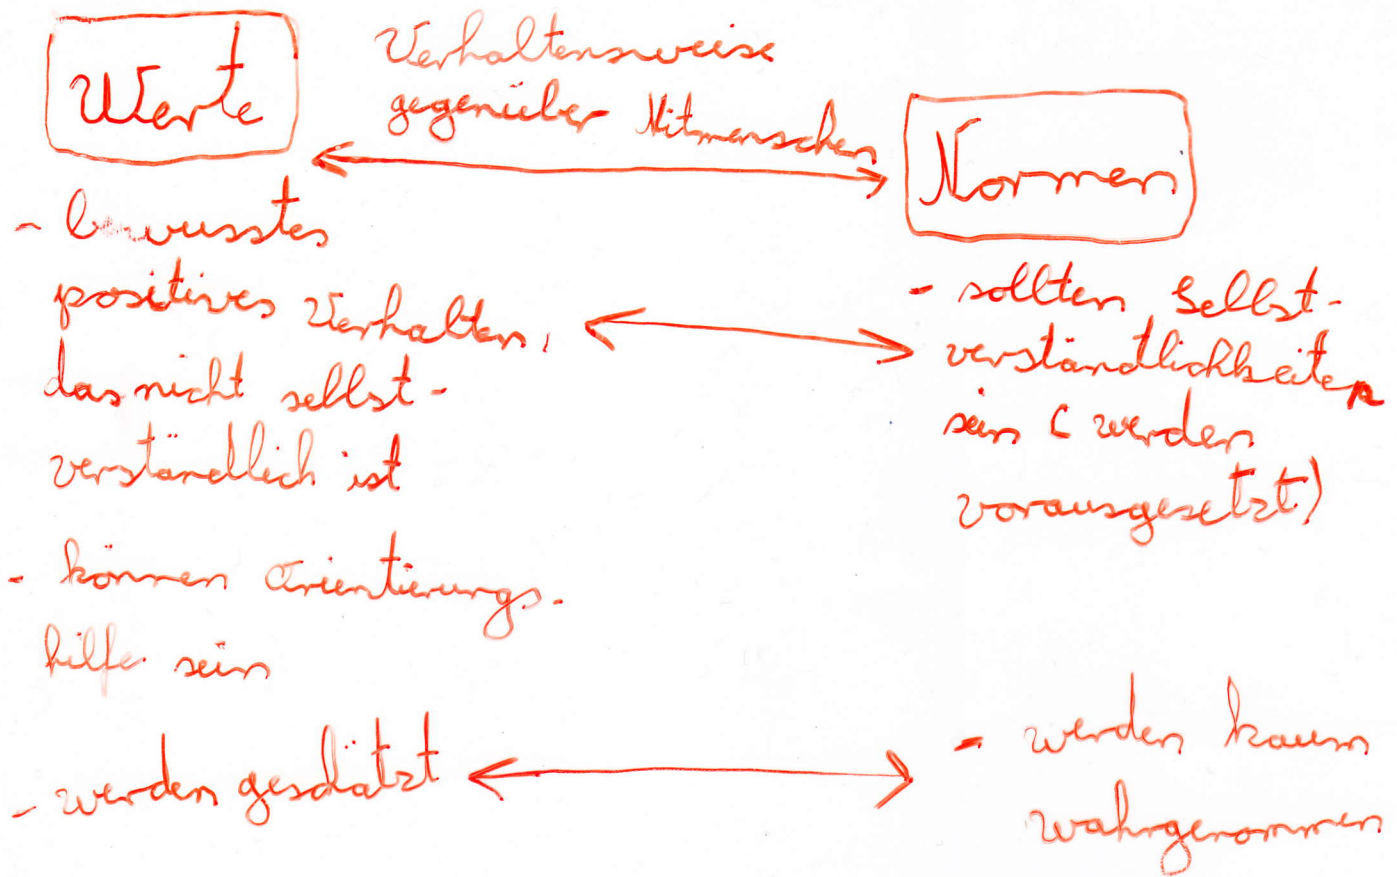 Werte
Verhaltensweise
gegenüber Mitmenschen
Normen
- bewusstes
positives Verhalten,
das nicht selbst-
verständlich ist
- können Orientierungs-
hilfe sein
- werden geschätzt
- sollten Selbst-
verständlichkeiten
sein (werden
vorausgesetzt)
- werden kaum
wahrgenommen